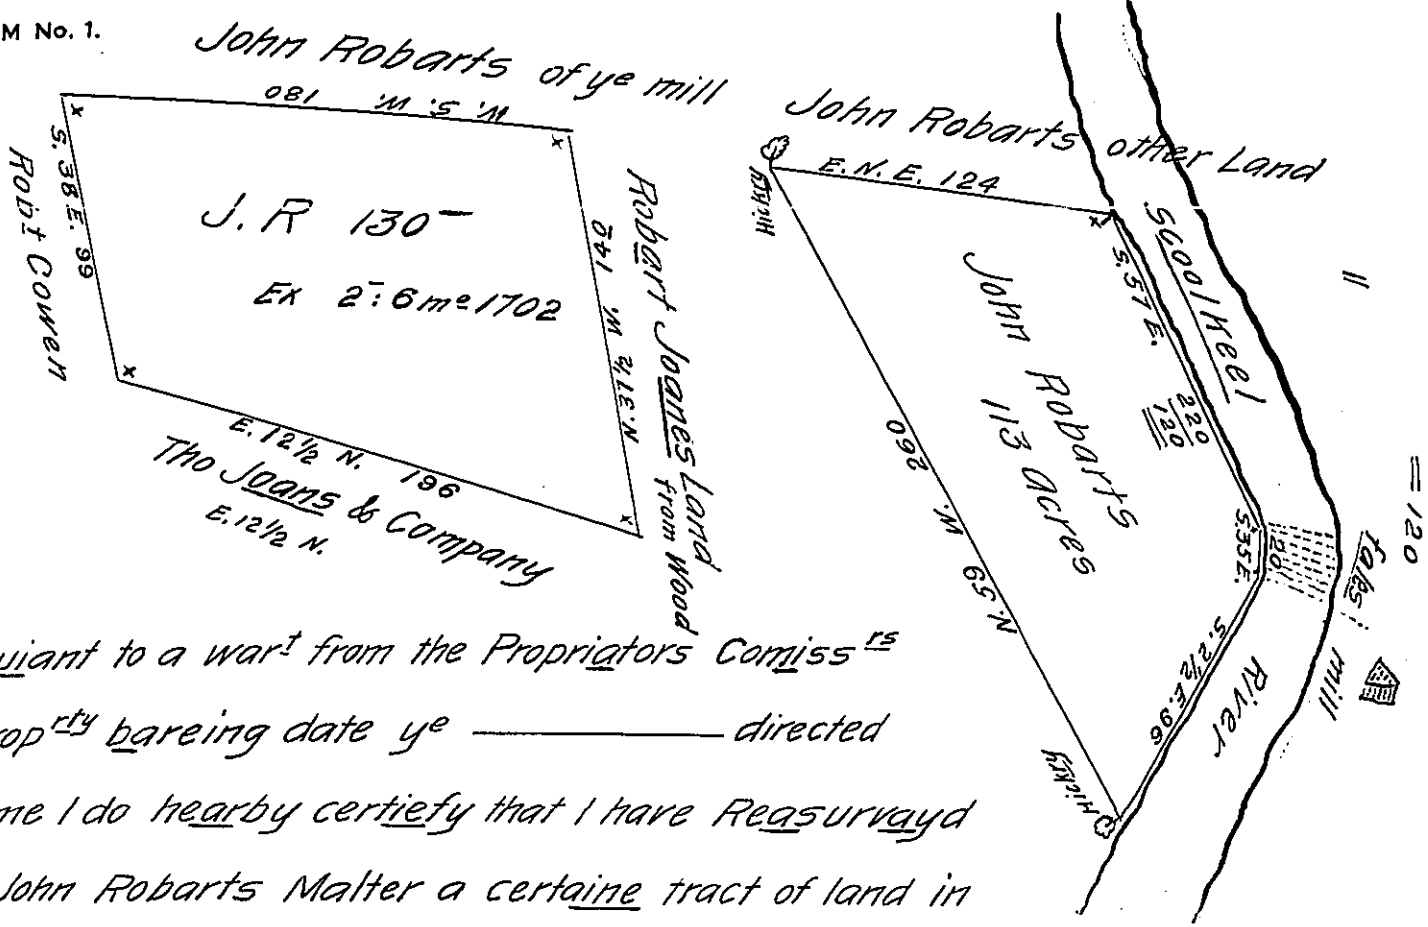 M No. 1.
John Robarts of ye mill
180 W. S. W.
S. 38 E. 99
Robt Cowen
J. R 130
Ex 2: 6 mo 1702
N. 31½ W 140
Robart Joanes Land
from Wood
E. 12½ N. 196
Tho Joans & Company
E. 12½ N.
John Robarts other Land
Hickry
E. N. E. 124
Scoolkeel
S. 57 E.
220
120
John Robarts
113 acres
N. 59 W. 260
S. 35 E.
20
fales
mill
= 120
S. 2½ E. 96
River
Hickry
uiant to a wart from the Propriators Comissrs
roprty bareing date ye directed
me I do hearby certiefy that I have Reasurvayd
John Robarts Malter a certaine tract of land in